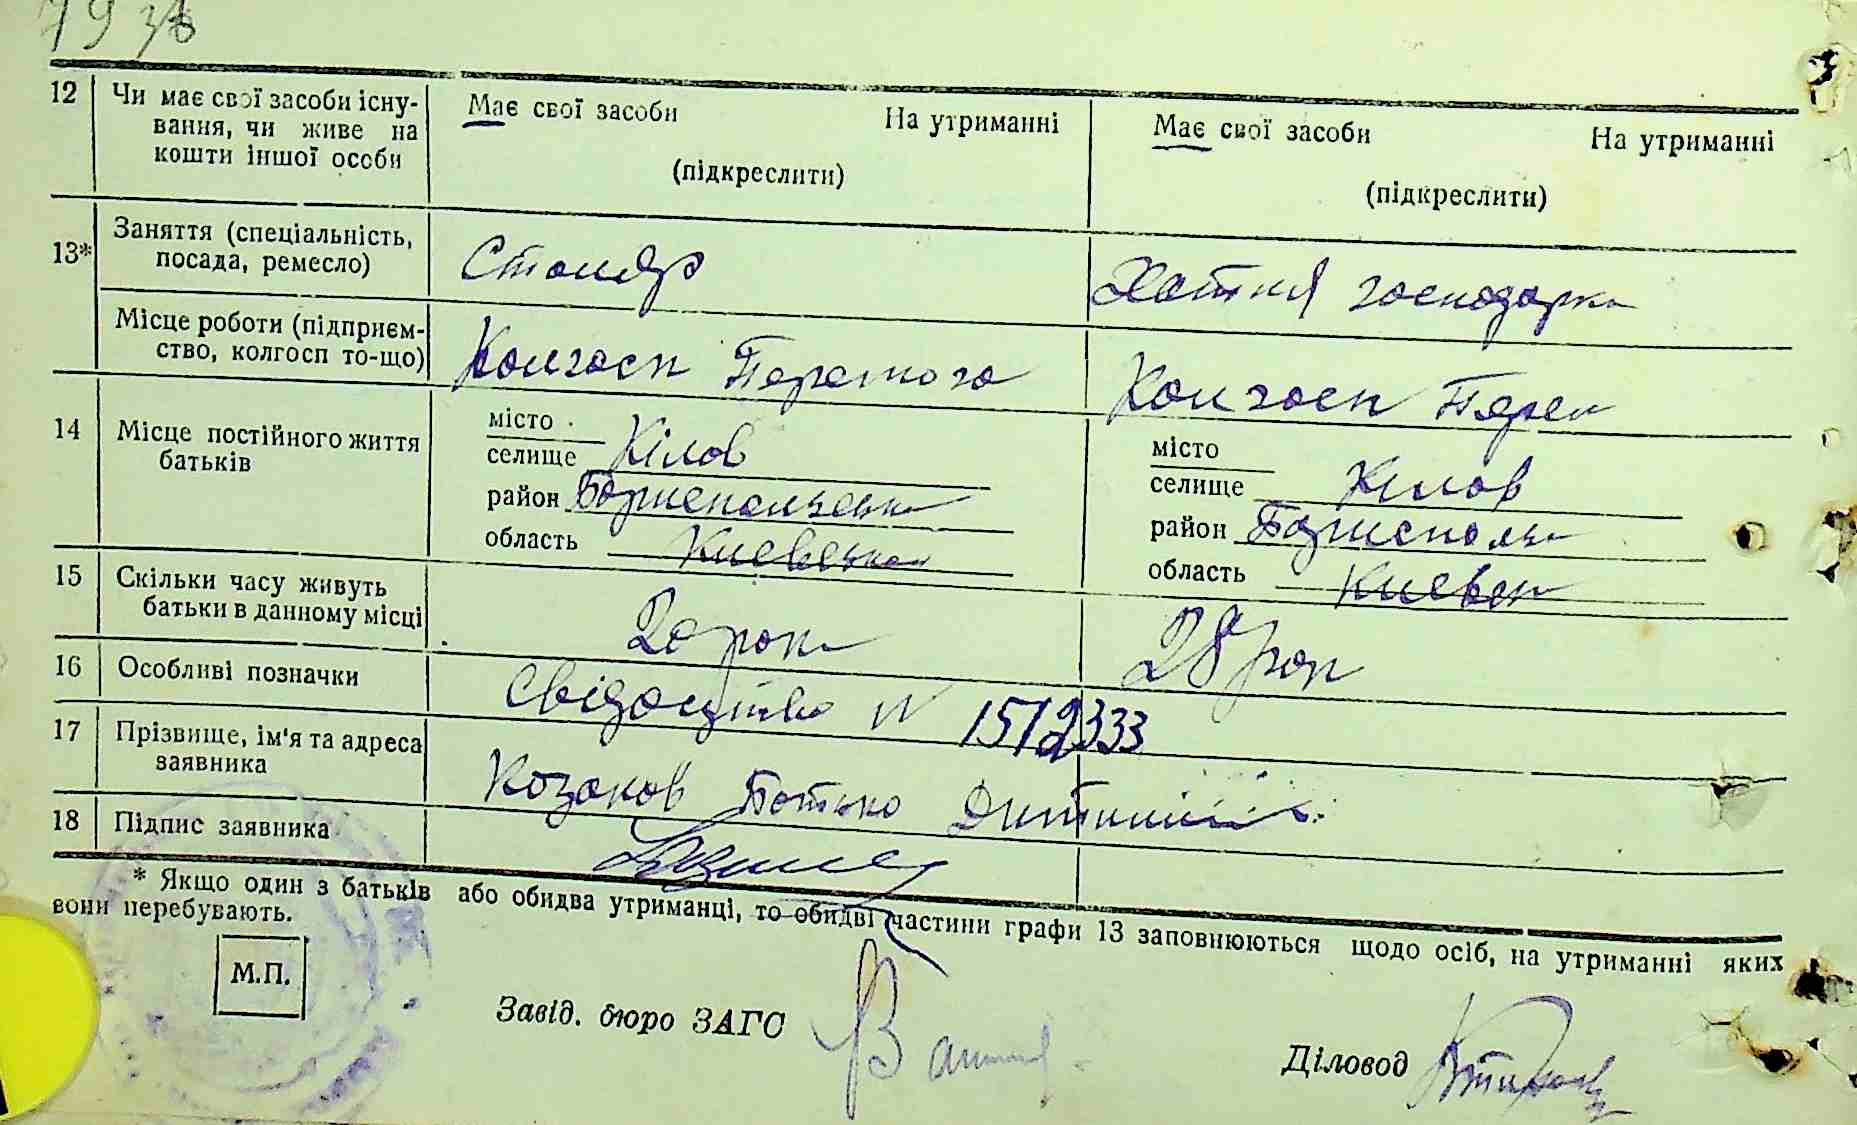 79 зв
12 Чи має свої засоби існу- Має свої засоби На утриманні Має свої засоби На утриманні
вання, чи живе на
кошти іншої особи (підкреслити) (підкреслити)
13* Заняття (спеціальність, Столяр Хатня господарка
посада, ремесло)
Місце роботи (підприєм- Колгосп Перемога Колгосп Перем
ство, колгосп то-що)
14 Місце постійного життя місто місто
батьків селище Кілов селище Килов
район Бориспольськ район Борисполь
область Киевськая область Киевск
15 Скільки часу живуть 20 рок 28 рок
батьки в данному місці
16 Особливі позначки Свідоцтво N 1512333
17 Прізвище, ім'я та адреса Козаков Батько Дитини
заявника
18 Підпис заявника
* Якщо один з батьків або обидва утриманці, то обидві частини графи 13 заповнюються щодо осіб, на утриманні яких
вони перебувають.
М.П.
Завід. бюро ЗАГС
Діловод